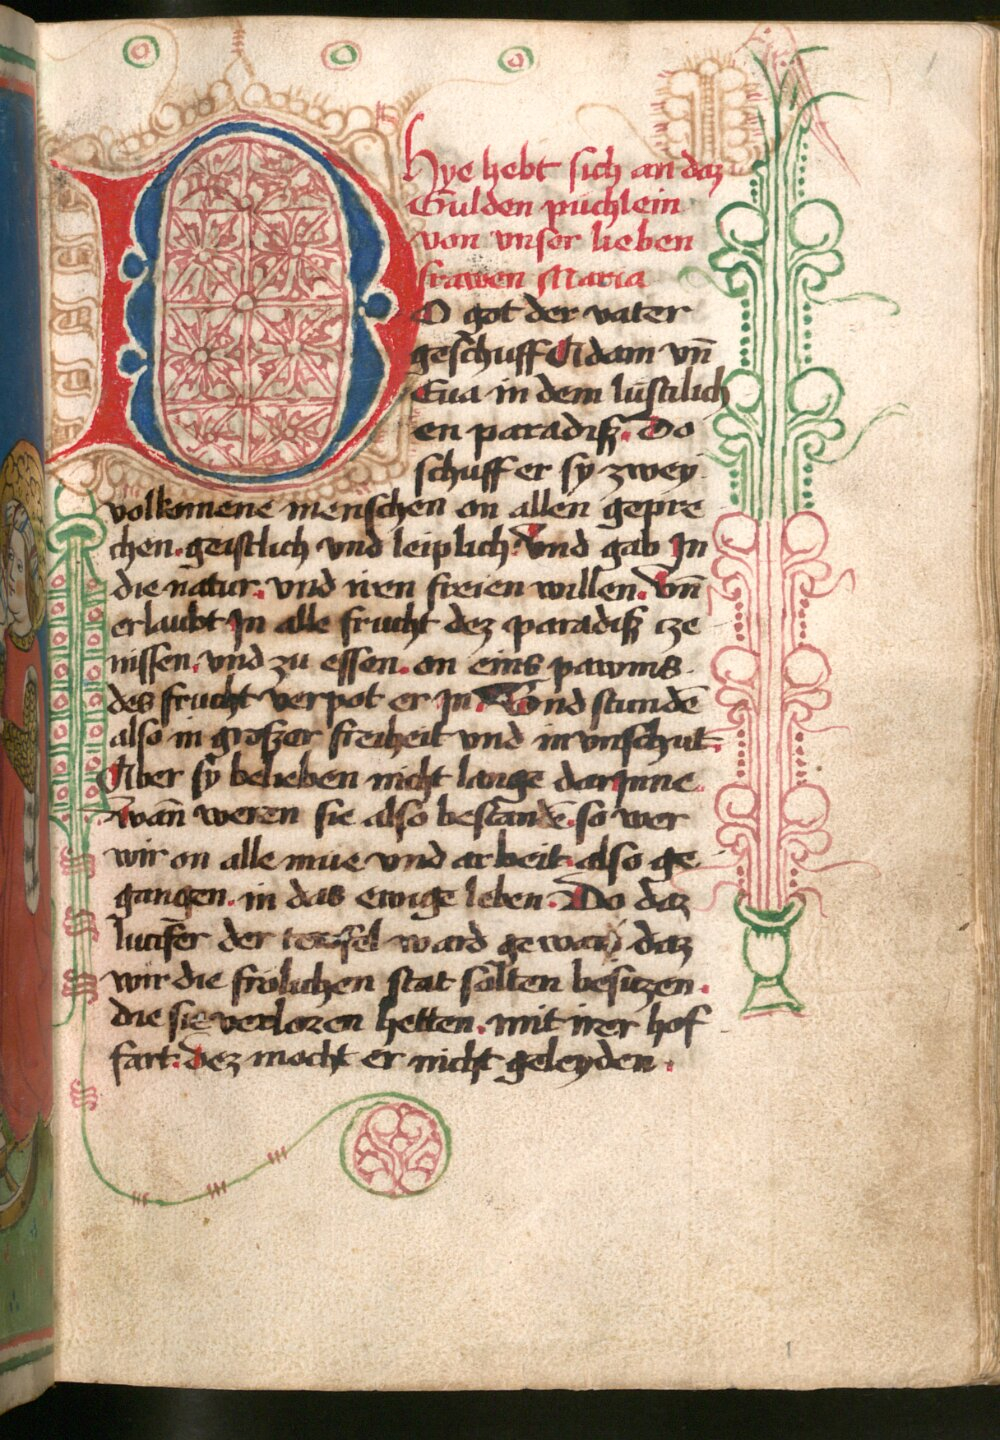 Hye hebt sich an daz
Gulden püchlein
von vnser lieben
frawen Maria
DO got der vater
geschuff Adam vn̄
Eua in dem lüstlich
en paradiß. Do
schuff er sy zwey
volkomene menschen on allen gepre
chen. geistlich vnd leiplich. Vnd gab In
die natur. vnd iren freien willen. Vn̄
erlaubt In alle frucht dez paradiß cze
nissen. vnd zu essen. on eins pawms.
des frucht verpot er In. Vnd stundē
also in groszer freiheit vnd in vnschult.
Aber sy beliben nicht lange darInne.
wan̄ weren sie also bestandē. so wer
wir on alle müe vnd arbeit. also ge
gangen. in das ewige leben. Do daz
lucifer der teuffel ward gewar. daz
wir die frölichen stat solten besiczen.
die sie verloren hetten. mit irer hof
fart. dez mocht er nicht geleyden.
1